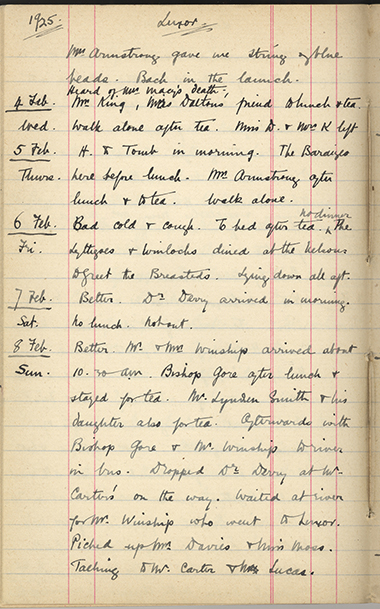 1925. Luxor.
Mrs Armstrong gave me string of blue
beads. Back in the launch.
Heard of Mrs Macy's death.
4 Feb. Mr. King, Miss Dalton's friend to lunch & tea.
Wed. Walk alone after tea. Miss D. & Mr K left
5 Feb. H. to Tomb in morning. The Baraizes
Thurs. here before lunch. Mrs Armstrong after
lunch & to tea. Walk alone.
no dinner
6 Feb. Bad cold & cough. To bed after tea. The
Fri. Lythgoes & Winlocks dined at the Nelsons
to greet the Breasteds. Lying down all aft.
7 Feb. Better. Dr. Derry arrived in morning.
Sat. No lunch. Not out.
8 Feb. Better. Mr. & Mrs Winship arrived about
Sun. 10.30 am. Bishop Gore after lunch &
stayed for tea. Mr. Lynden Smith & his
daughter also for tea. Afterwards with
Bishop Gore & Mr. Winship to river
in bus. Dropped Dr. Derry at Mr.
Carter's on the way. Waited at river
for Mr. Winship who went to Luxor.
Picked up Mr. Davies & Miss Moss.
Talking to Mr. Carter & Lucas.